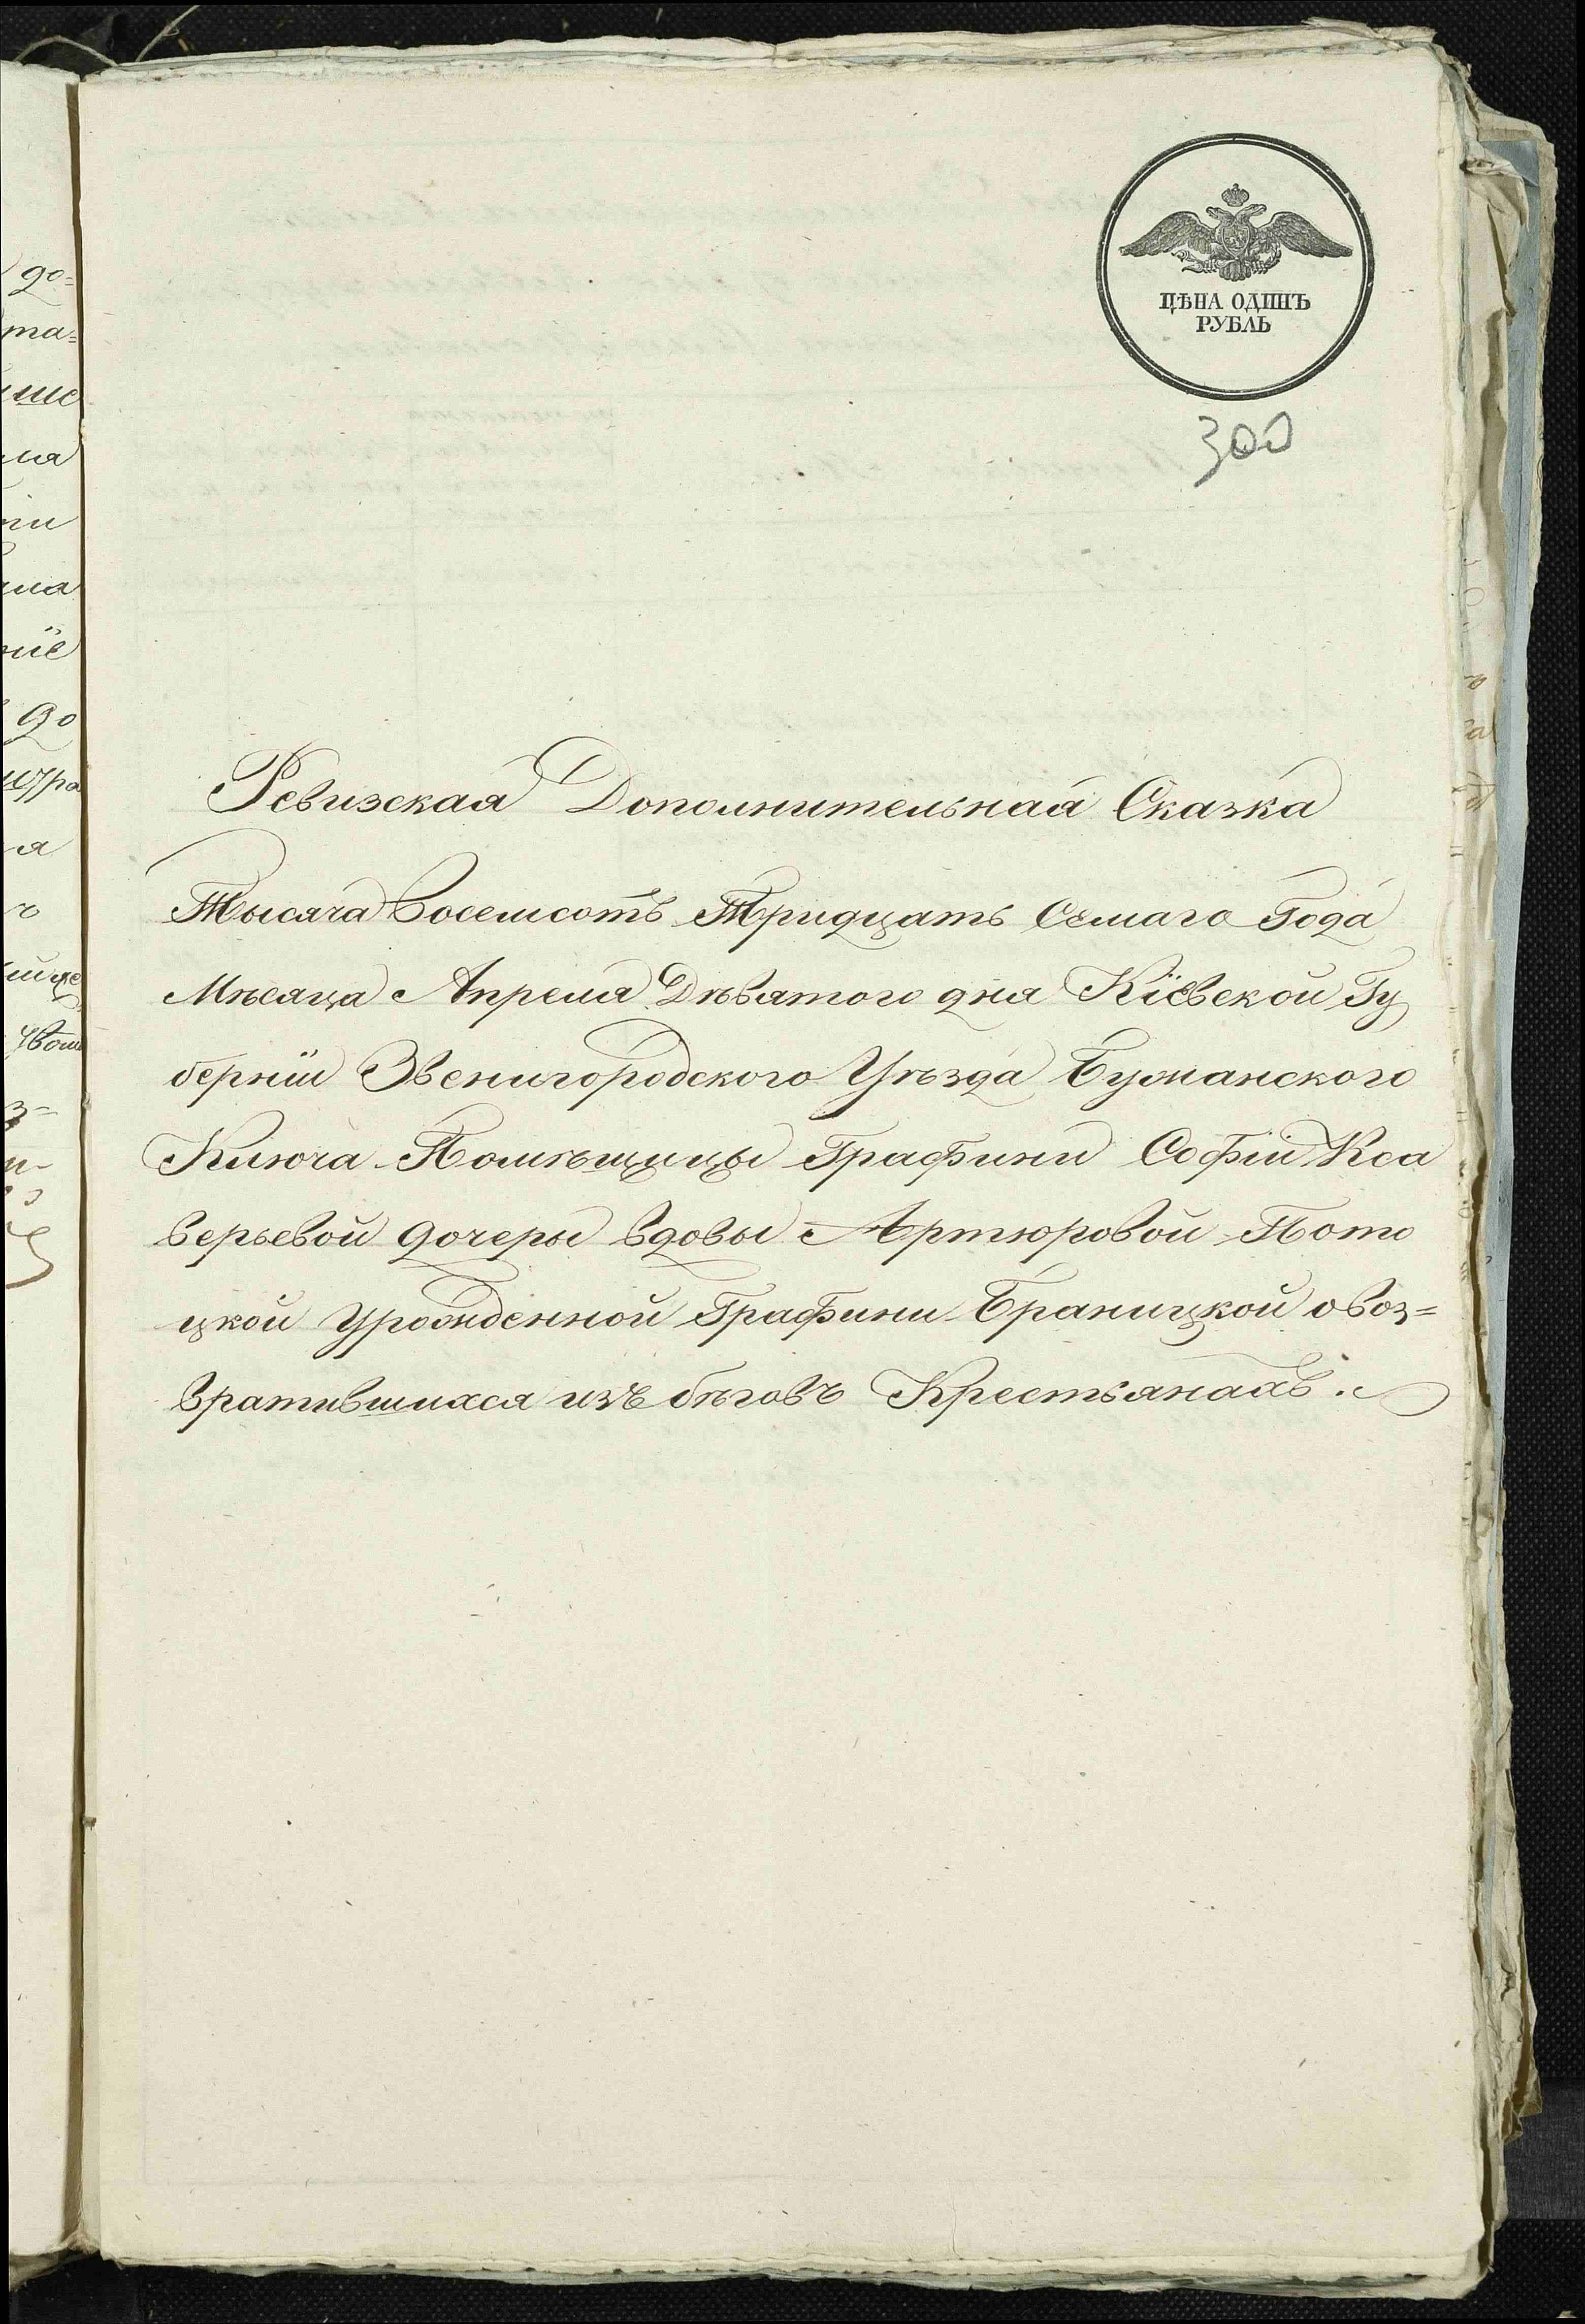 ЦѢНА ОДИНЪ
РУБЛЬ
300
Ревизская Дополнительная Сказка
Тысяча Восемсотъ Тридцать Семаго Года
Мѣсяца Апреля Дѣвятого дня Кіевской Гу
берніи Звенигородского Уѣзда Бужанского
Ключа Помѣщицы Графини Софіи Кса
верьевой дочеры вдовы Артюровой Пото
цкой Урожденной Графини Браницкой овоз=
вратившихся изъ бѣговъ Крестьянахъ.